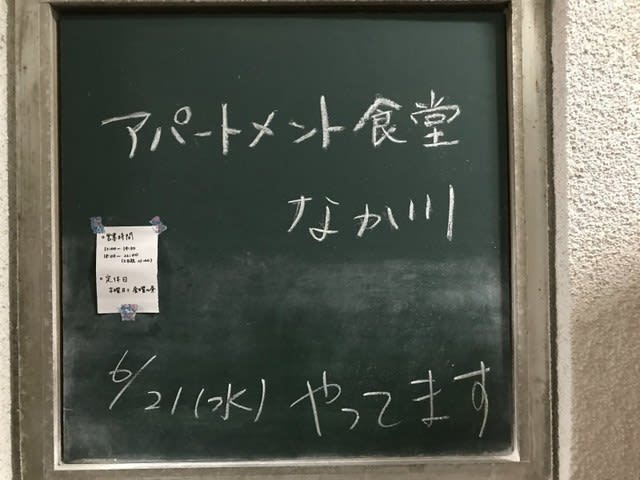 アパートメント食堂
なか川
・営業時間
・定休日
6/21(水) やってます